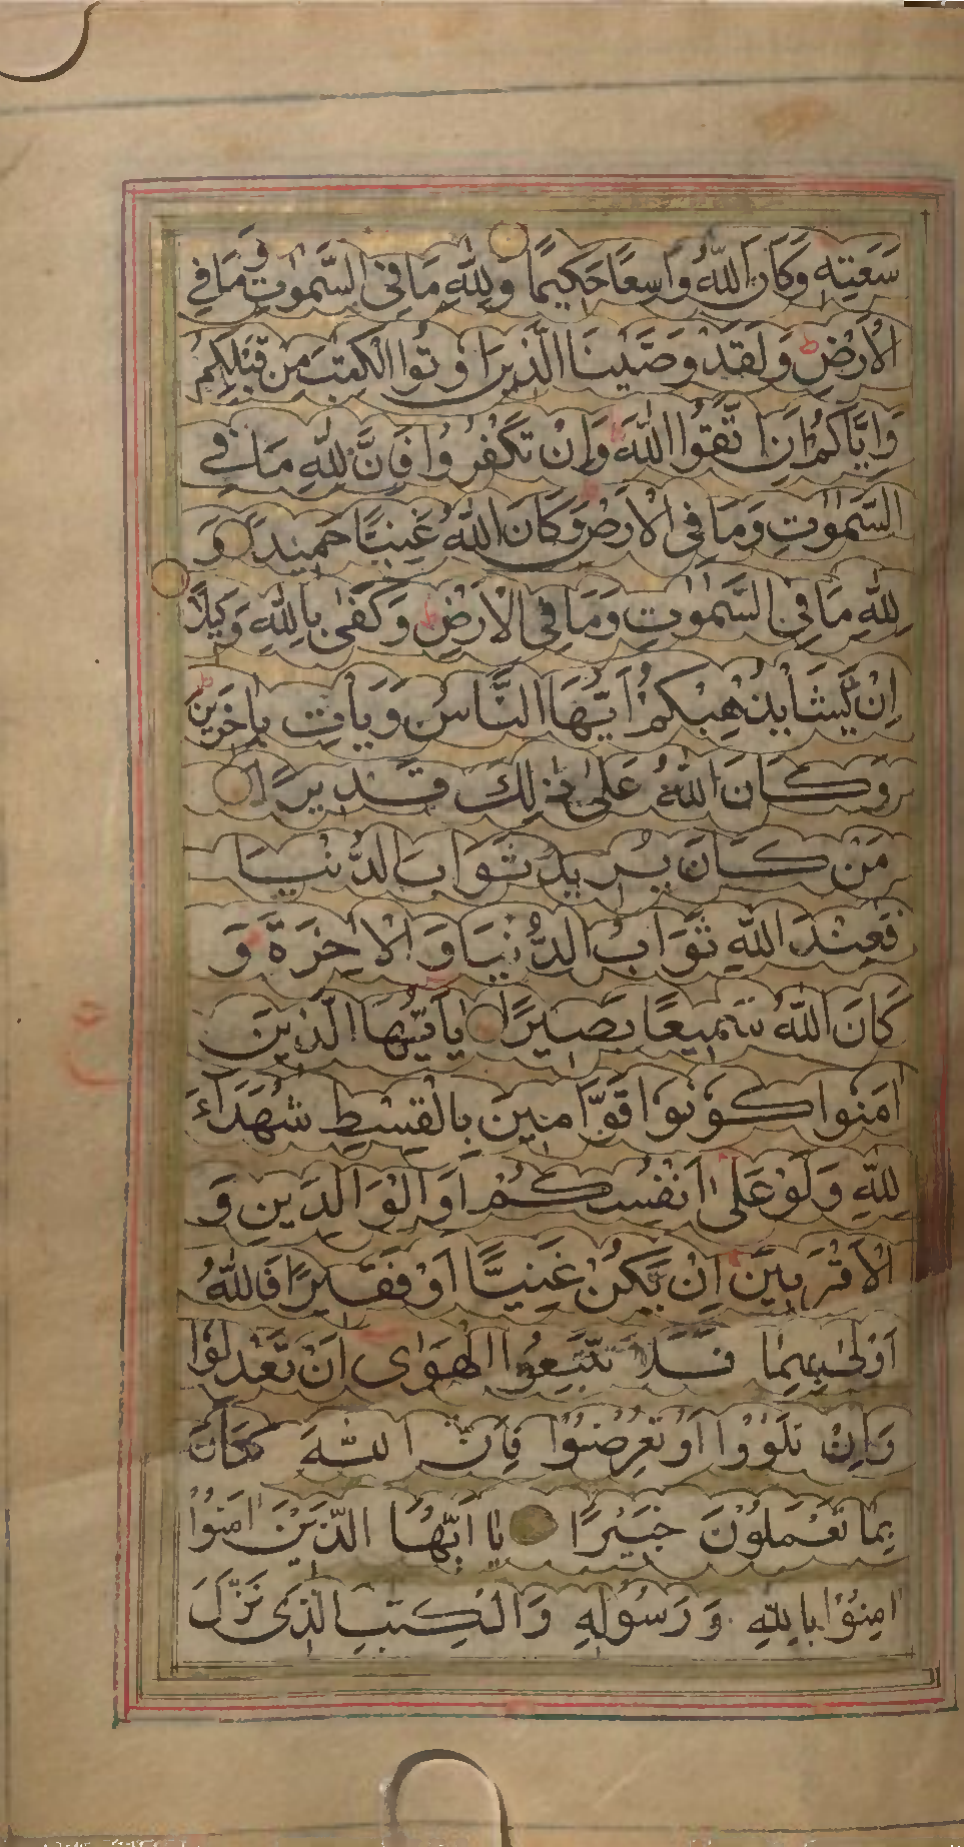 سَعَتِهٖ وَكَانَ اللّٰهُ وَاسِعًا حَكِيمًا وَلِلّٰهِ مَا فِى السَّمٰوٰتِ وَمَا فِى
الْاَرْضِ ط وَلَقَدْ وَصَّيْنَا الَّذِينَ اُوتُوا الْكِتٰبَ مِنْ قَبْلِكُمْ
وَاِيَّاكُمْ اَنِ اتَّقُوا اللّٰهَ وَاِنْ تَكْفُرُوا فَاِنَّ لِلّٰهِ مَا فِى
السَّمٰوٰتِ وَمَا فِى الْاَرْضِ وَكَانَ اللّٰهُ غَنِيًّا حَمِيدًا وَ
لِلّٰهِ مَا فِى السَّمٰوٰتِ وَمَا فِى الْاَرْضِ ط وَكَفٰى بِاللّٰهِ وَكِيلًا
اِنْ يَّشَأْ يُذْهِبْكُمْ اَيُّهَا النَّاسُ وَيَأْتِ بِاٰخَرِينَ ط
وَكَانَ اللّٰهُ عَلٰى ذٰلِكَ قَدِيرًا
مَنْ كَانَ يُرِيدُ ثَوَابَ الدُّنْيَا
فَعِنْدَ اللّٰهِ ثَوَابُ الدُّنْيَا وَالْاٰخِرَةِ وَ
كَانَ اللّٰهُ سَمِيعًا بَصِيرًا يٰاَيُّهَا الَّذِينَ
اٰمَنُوا كُونُوا قَوَّامِينَ بِالْقِسْطِ شُهَدَاءَ
لِلّٰهِ وَلَوْ عَلٰى اَنْفُسِكُمْ اَوِ الْوَالِدَيْنِ وَ
الْاَقْرَبِينَ اِنْ يَّكُنْ غَنِيًّا اَوْ فَقِيرًا فَاللّٰهُ
اَوْلٰى بِهِمَا فَلَا تَتَّبِعُوا الْهَوٰى اَنْ تَعْدِلُوا
وَاِنْ تَلْوٗوا اَوْ تُعْرِضُوا فَاِنَّ اللّٰهَ كَانَ
بِمَا تَعْمَلُوْنَ خَبِيْرًا يَا اَيُّهَا الَّذِيْنَ اٰمَنُوْا
اٰمِنُوْا بِاللّٰهِ وَرَسُوْلِهٖ وَالْكِتٰبِ الَّذِىْ نَزَّلَ
ع